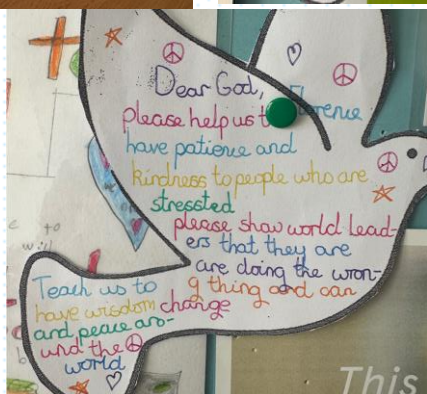 Dear God,
Florence
please help us to
have patience and
kindness to people who are
stressted
please show world lead-
ers that they are
are doing the wron-
g thing and can
change
Teach us to
have wisdom
and peace aro-
und the
world
to
will
This